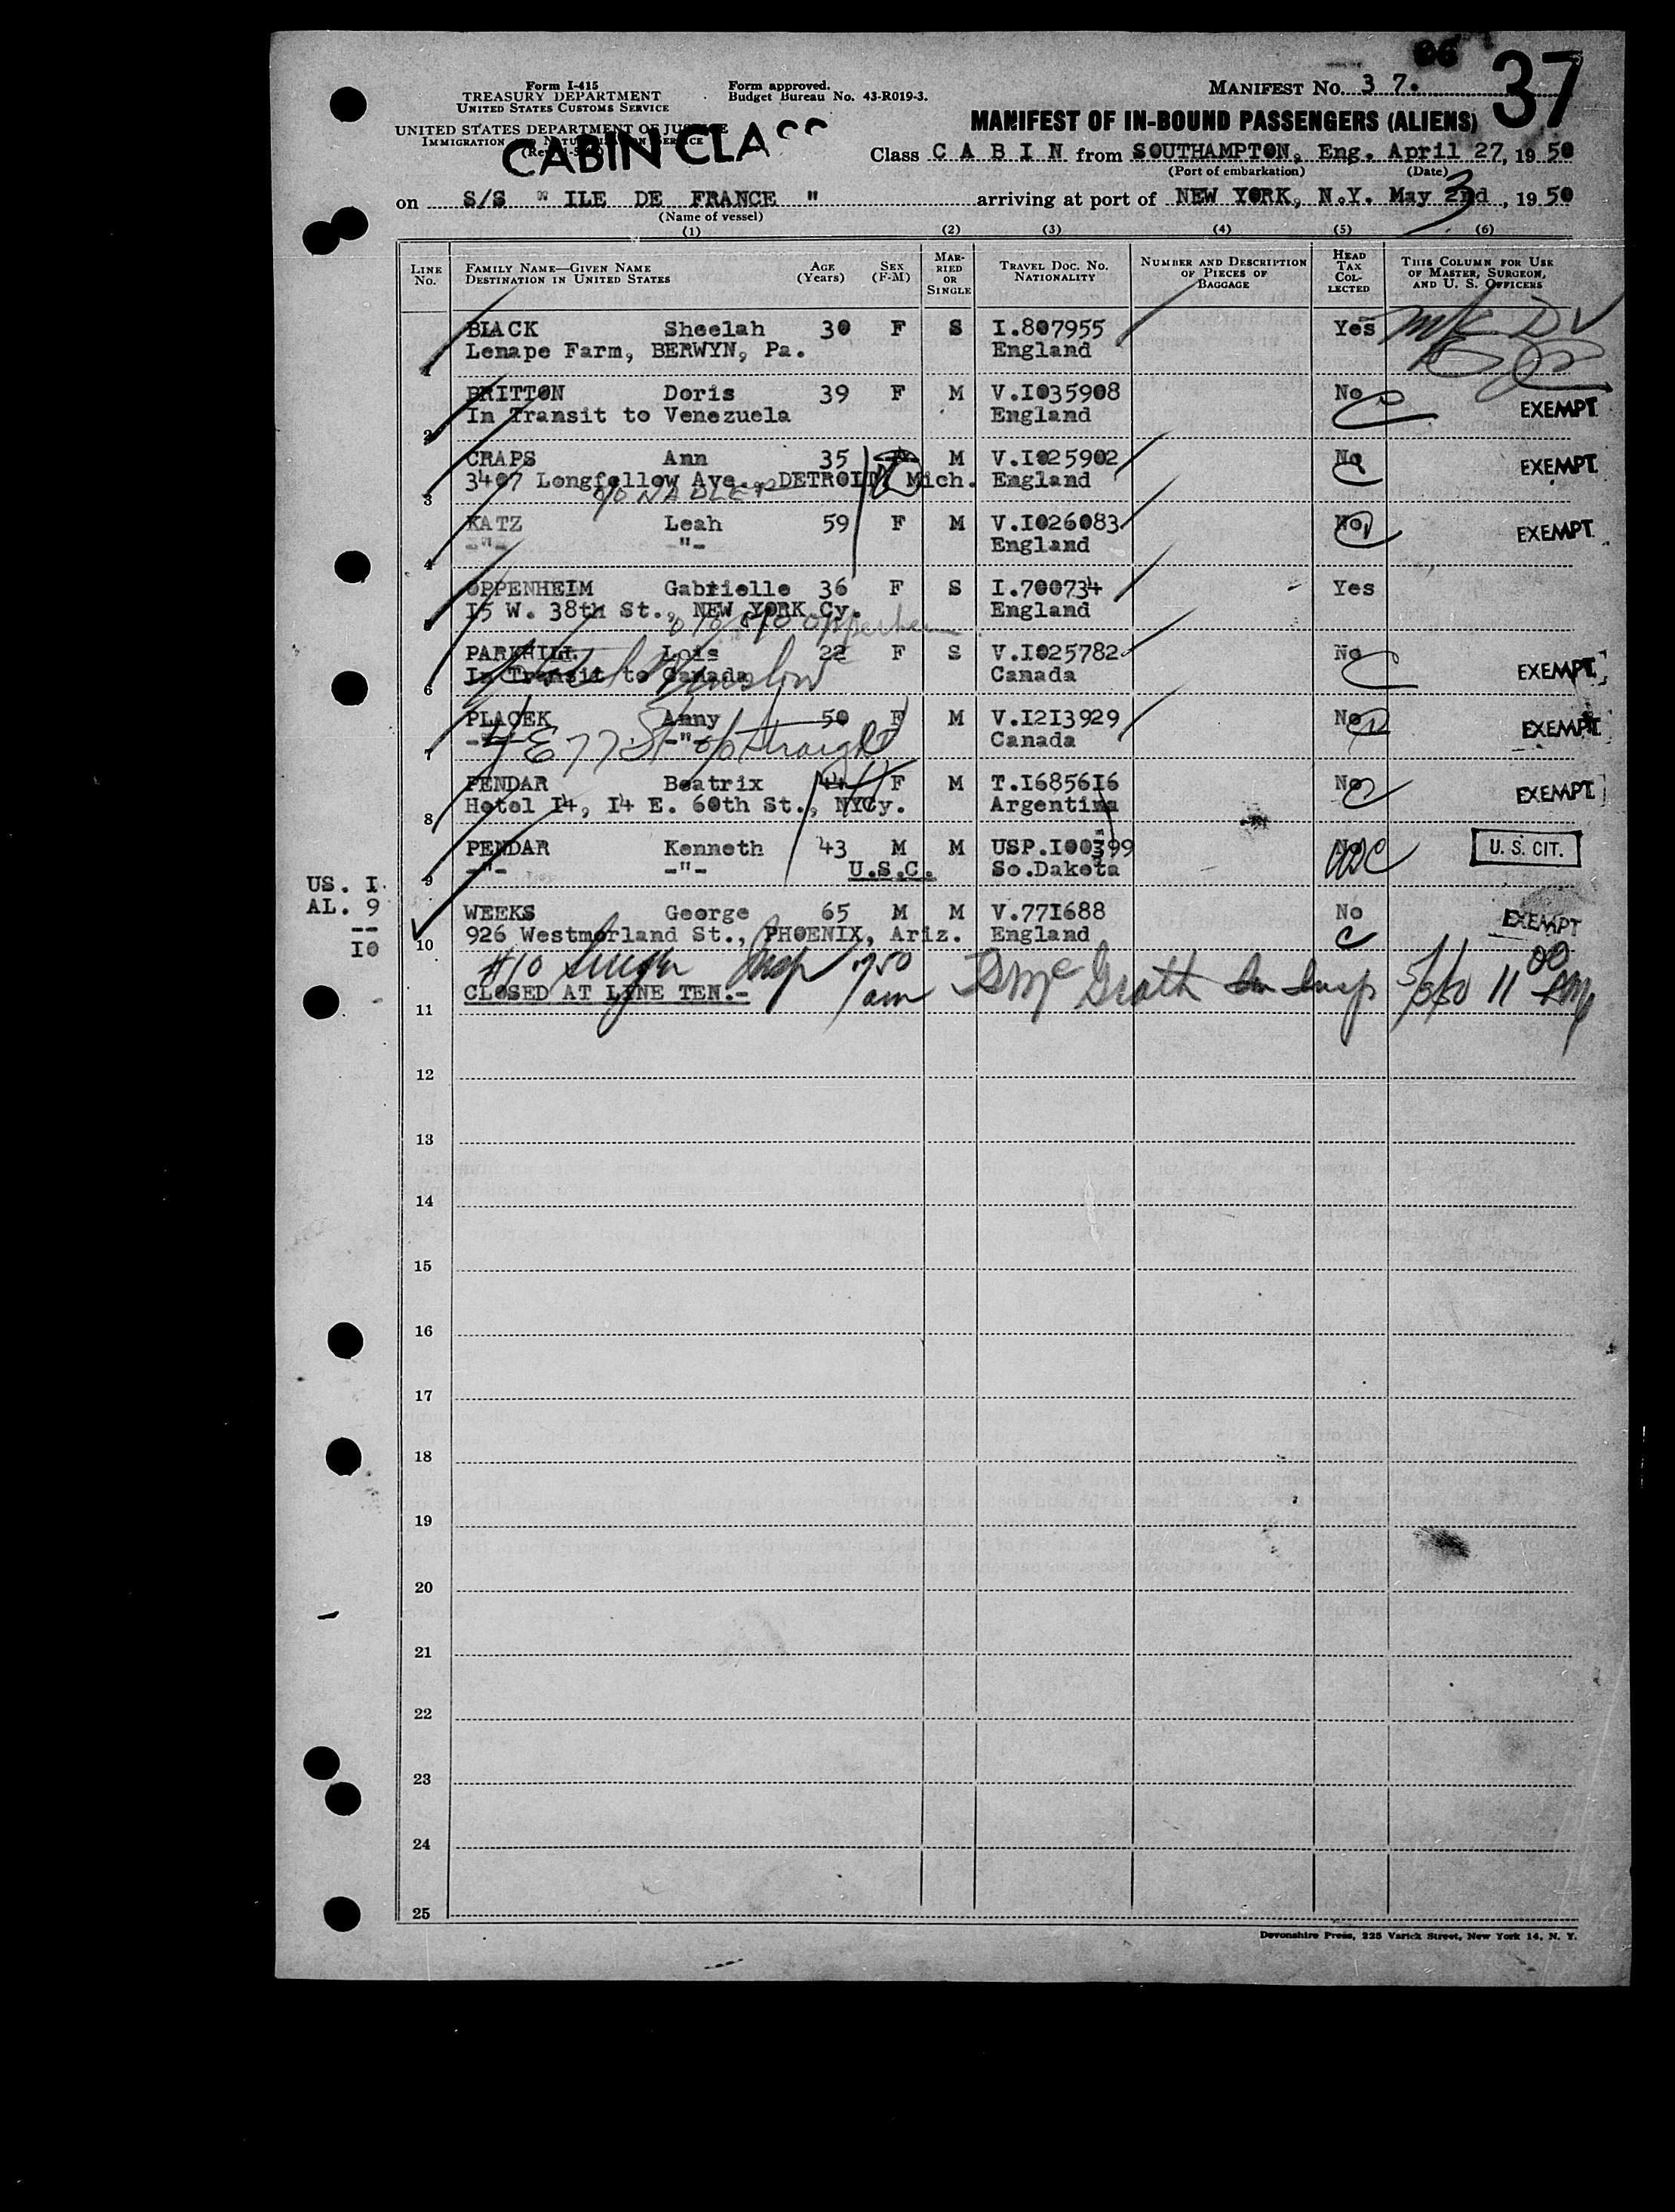 37
Form I-415
TREASURY DEPARTMENT
UNITED STATES CUSTOMS SERVICE
Form approved.
Budget Bureau No. 43-R019-3.
MANIFEST NO. 3 7.
UNITED STATES DEPARTMENT OF JUSTICE
IMMIGRATION
CABIN CLASS
MANIFEST OF IN-BOUND PASSENGERS (ALIENS)
Class C A B I N from SOUTHAMPTON, Eng. April 27, 19 50
(Port of embarkation) (Date)
on S/S " ILE DE FRANCE " arriving at port of NEW YORK, N.Y. May 2nd 3, 19 50
(Name of vessel)
(1) (2) (3) (4) (5) (6)
LINE NO. FAMILY NAME—GIVEN NAME DESTINATION IN UNITED STATES AGE (YEARS) SEX (F-M) MARRIED OR SINGLE TRAVEL DOC. NO. NATIONALITY NUMBER AND DESCRIPTION OF PIECES OF BAGGAGE HEAD TAX COLLECTED THIS COLUMN FOR USE OF MASTER, SURGEON, AND U. S. OFFICERS
BLACK Sheelah 30 F S I.807955 Yes
1 Lenape Farm, BERWYN, Pa. England
BRITTON Doris 39 F M V.I035908 No
2 In Transit to Venezuela England EXEMPT
CRAPS Ann 35 M V.I025902 No EXEMPT
3 3407 Longfellow Ave., DETROIT, Mich. England
KATZ Leah 59 F M V.I026083 No EXEMPT
4 -"- -"- England
OPPENHEIM Gabrielle 36 F S I.700734 Yes
5 I5 W. 38th St., NEW YORK Cy. England
PARKHILL Lois 22 F S V.I025782 No
6 In Transit to Canada Canada EXEMPT
PLACEK Anny 50 F M V.I2I3929 No EXEMPT
7 -"- -"- Canada
4 E 77 St
PENDAR Beatrix 44 F M T.I6856I6 No EXEMPT
8 Hotel I4, I4 E. 60th St., NYCy. Argentina
PENDAR Kenneth 43 M M USP.I00399 No U. S. CIT.
9 -"- -"- U.S.C. So.Dakota
US. I
AL. 9
--
I0
WEEKS George 65 M M V.77I688 No EXEMPT
10 926 Westmorland St., PHOENIX, Ariz. England
#10 Insp 750 am
CLOSED AT LINE TEN.-
11
12
13
14
15
16
17
18
19
20
21
22
23
24
25
Devonshire Press, 225 Varick Street, New York 14, N. Y.